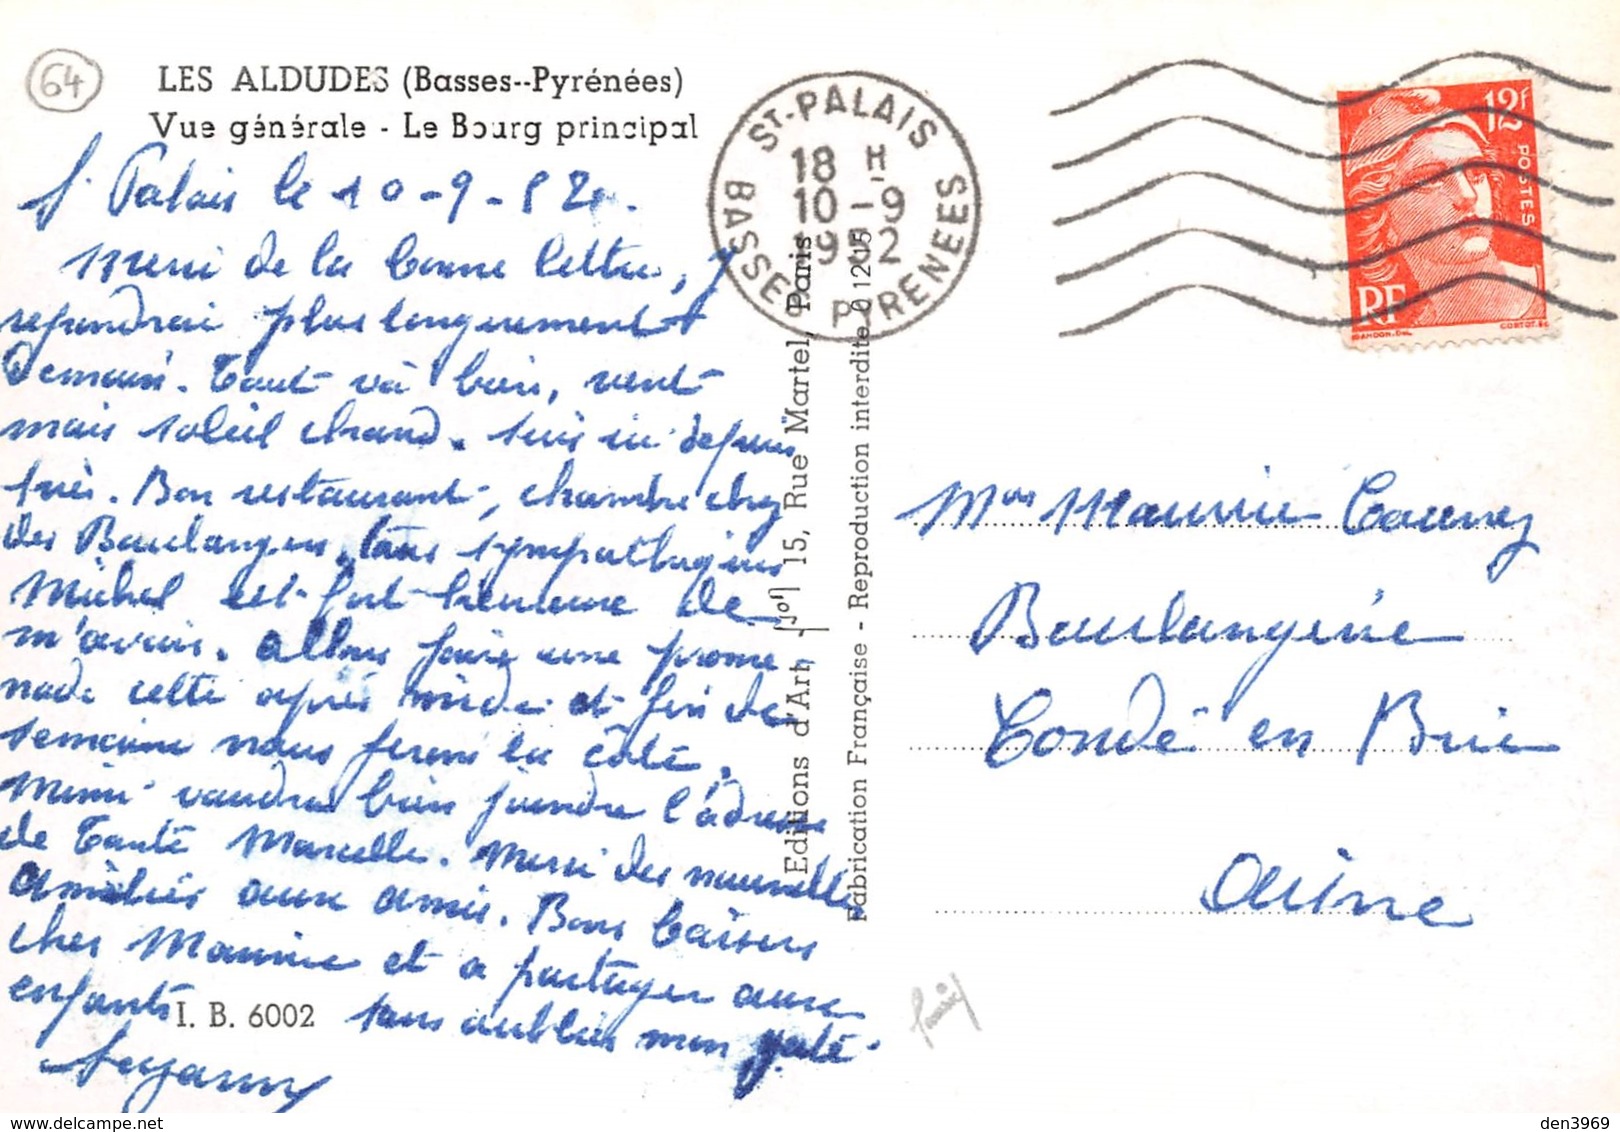 64
LES ALDUDES (Basses--Pyrénées)
Vue générale - Le Bourg principal
St Palais le 10-9-52.
Merci de la bonne lettre, J
répondrai plus longuement
Demain. Tout va bien, vent
mais soleil chaud. Suis ici depuis
hier. Bon restaurant, chambre chez
des Boulangers, tous sympathiques
Michel est fort heureux de
m'avoir. Allons faire une prome-
nade cette après midi et fin de
semaine nous ferons la côte.
Mimi voudra bien joindre l'adresse
de Tante Marcelle. Merci des nouvelles
Amitiés aux amis. Bons baisers
cher Maurice et a partager aux
enfants sans oublier mon
I. B. 6002
ST-PALAIS
18 H
10-9
1952
BASSES PYRENEES
Editions d'Art 15, Rue Martel, Paris
Fabrication Française - Reproduction interdite
12f
POSTES
RF
GANDON.DEL
CORTOT.SC
Maurice
Boulangerie
Condé en Brie
Aisne
den3969